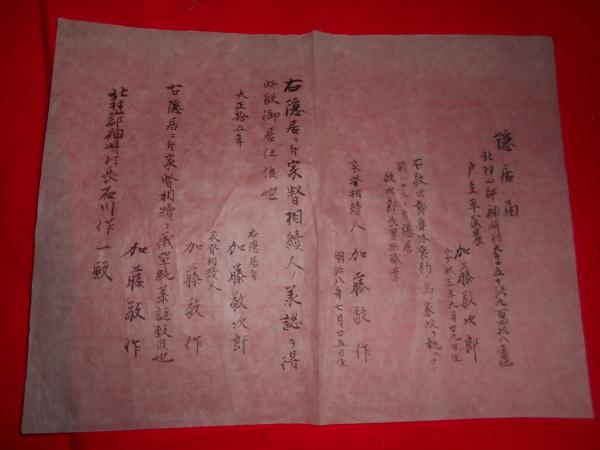 隠居届
北村山郡袖崎村大字五十沢九百四拾八番地
戸主平民農
加藤敬次郎
安政三年九月廿九日生
右敬次郎身体衰弱ノ為家政ヲ執ル
隠居
敬次郎長男無職業
家督相續人 加藤敬作
明治八年七月廿五日生
右隠居ニ付家督相續人ノ承認ヲ得
此段御届仕候也
大正拾五年
右隠居者
加藤敬次郎
家督相續人
加藤敬作
右隠居ニ付家督相續ノ儀單純承認致候也
加藤敬作
北村山郡袖崎村長石川作一殿